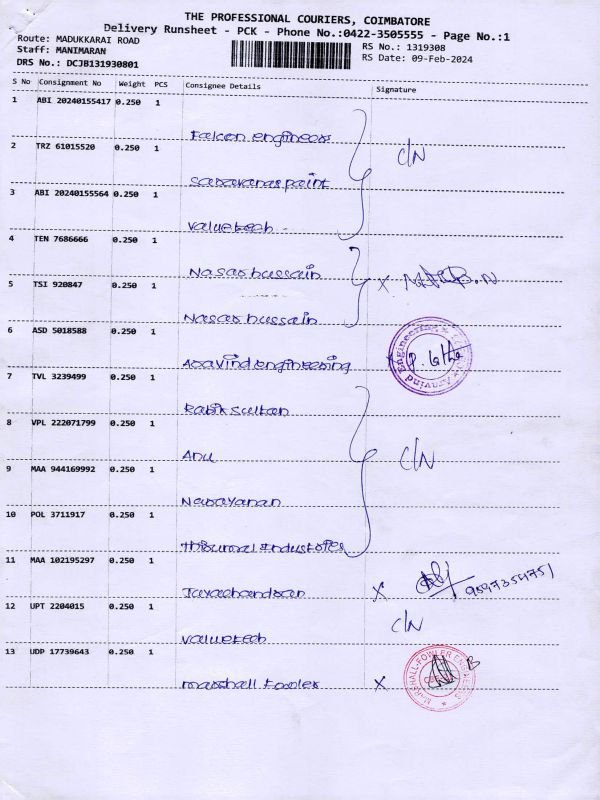 THE PROFESSIONAL COURIERS, COIMBATORE
Delivery Runsheet - PCK - Phone No.:0422-3505555 - Page No.:1
Route: MADUKKARAI ROAD
Staff: MANIMARAN
DRS No.: DCJB131930801
RS No.: 1319308
RS Date: 09-Feb-2024
S No Consignment No Weight PCS Consignee Details Signature
1 ABI 20240155417 0.250 1
Falcon engineers
2 TRZ 61015520 0.250 1 C/N
Saravanas paint
3 ABI 20240155564 0.250 1
Valuetech
4 TEN 7686666 0.250 1
Nasar hussain
5 TSI 920847 0.250 1 X
Nasar hussain
6 ASD 5018588 0.250 1
Aravind engineering P. Latha
Aravind Engineering
7 TVL 3239499 0.250 1
Rabik Sultan
8 VPL 222071799 0.250 1
Anu C/N
9 MAA 944169992 0.250 1
Narayanan
10 POL 3711917 0.250 1
Thirumal Industries
11 MAA 102195297 0.250 1
Jayachandran X 9597354751
12 UPT 2204015 0.250 1 C/N
Valuetech
13 UDP 17739643 0.250 1
Marshall Fowler X B
MARSHALL-FOWLER ENGINEERS